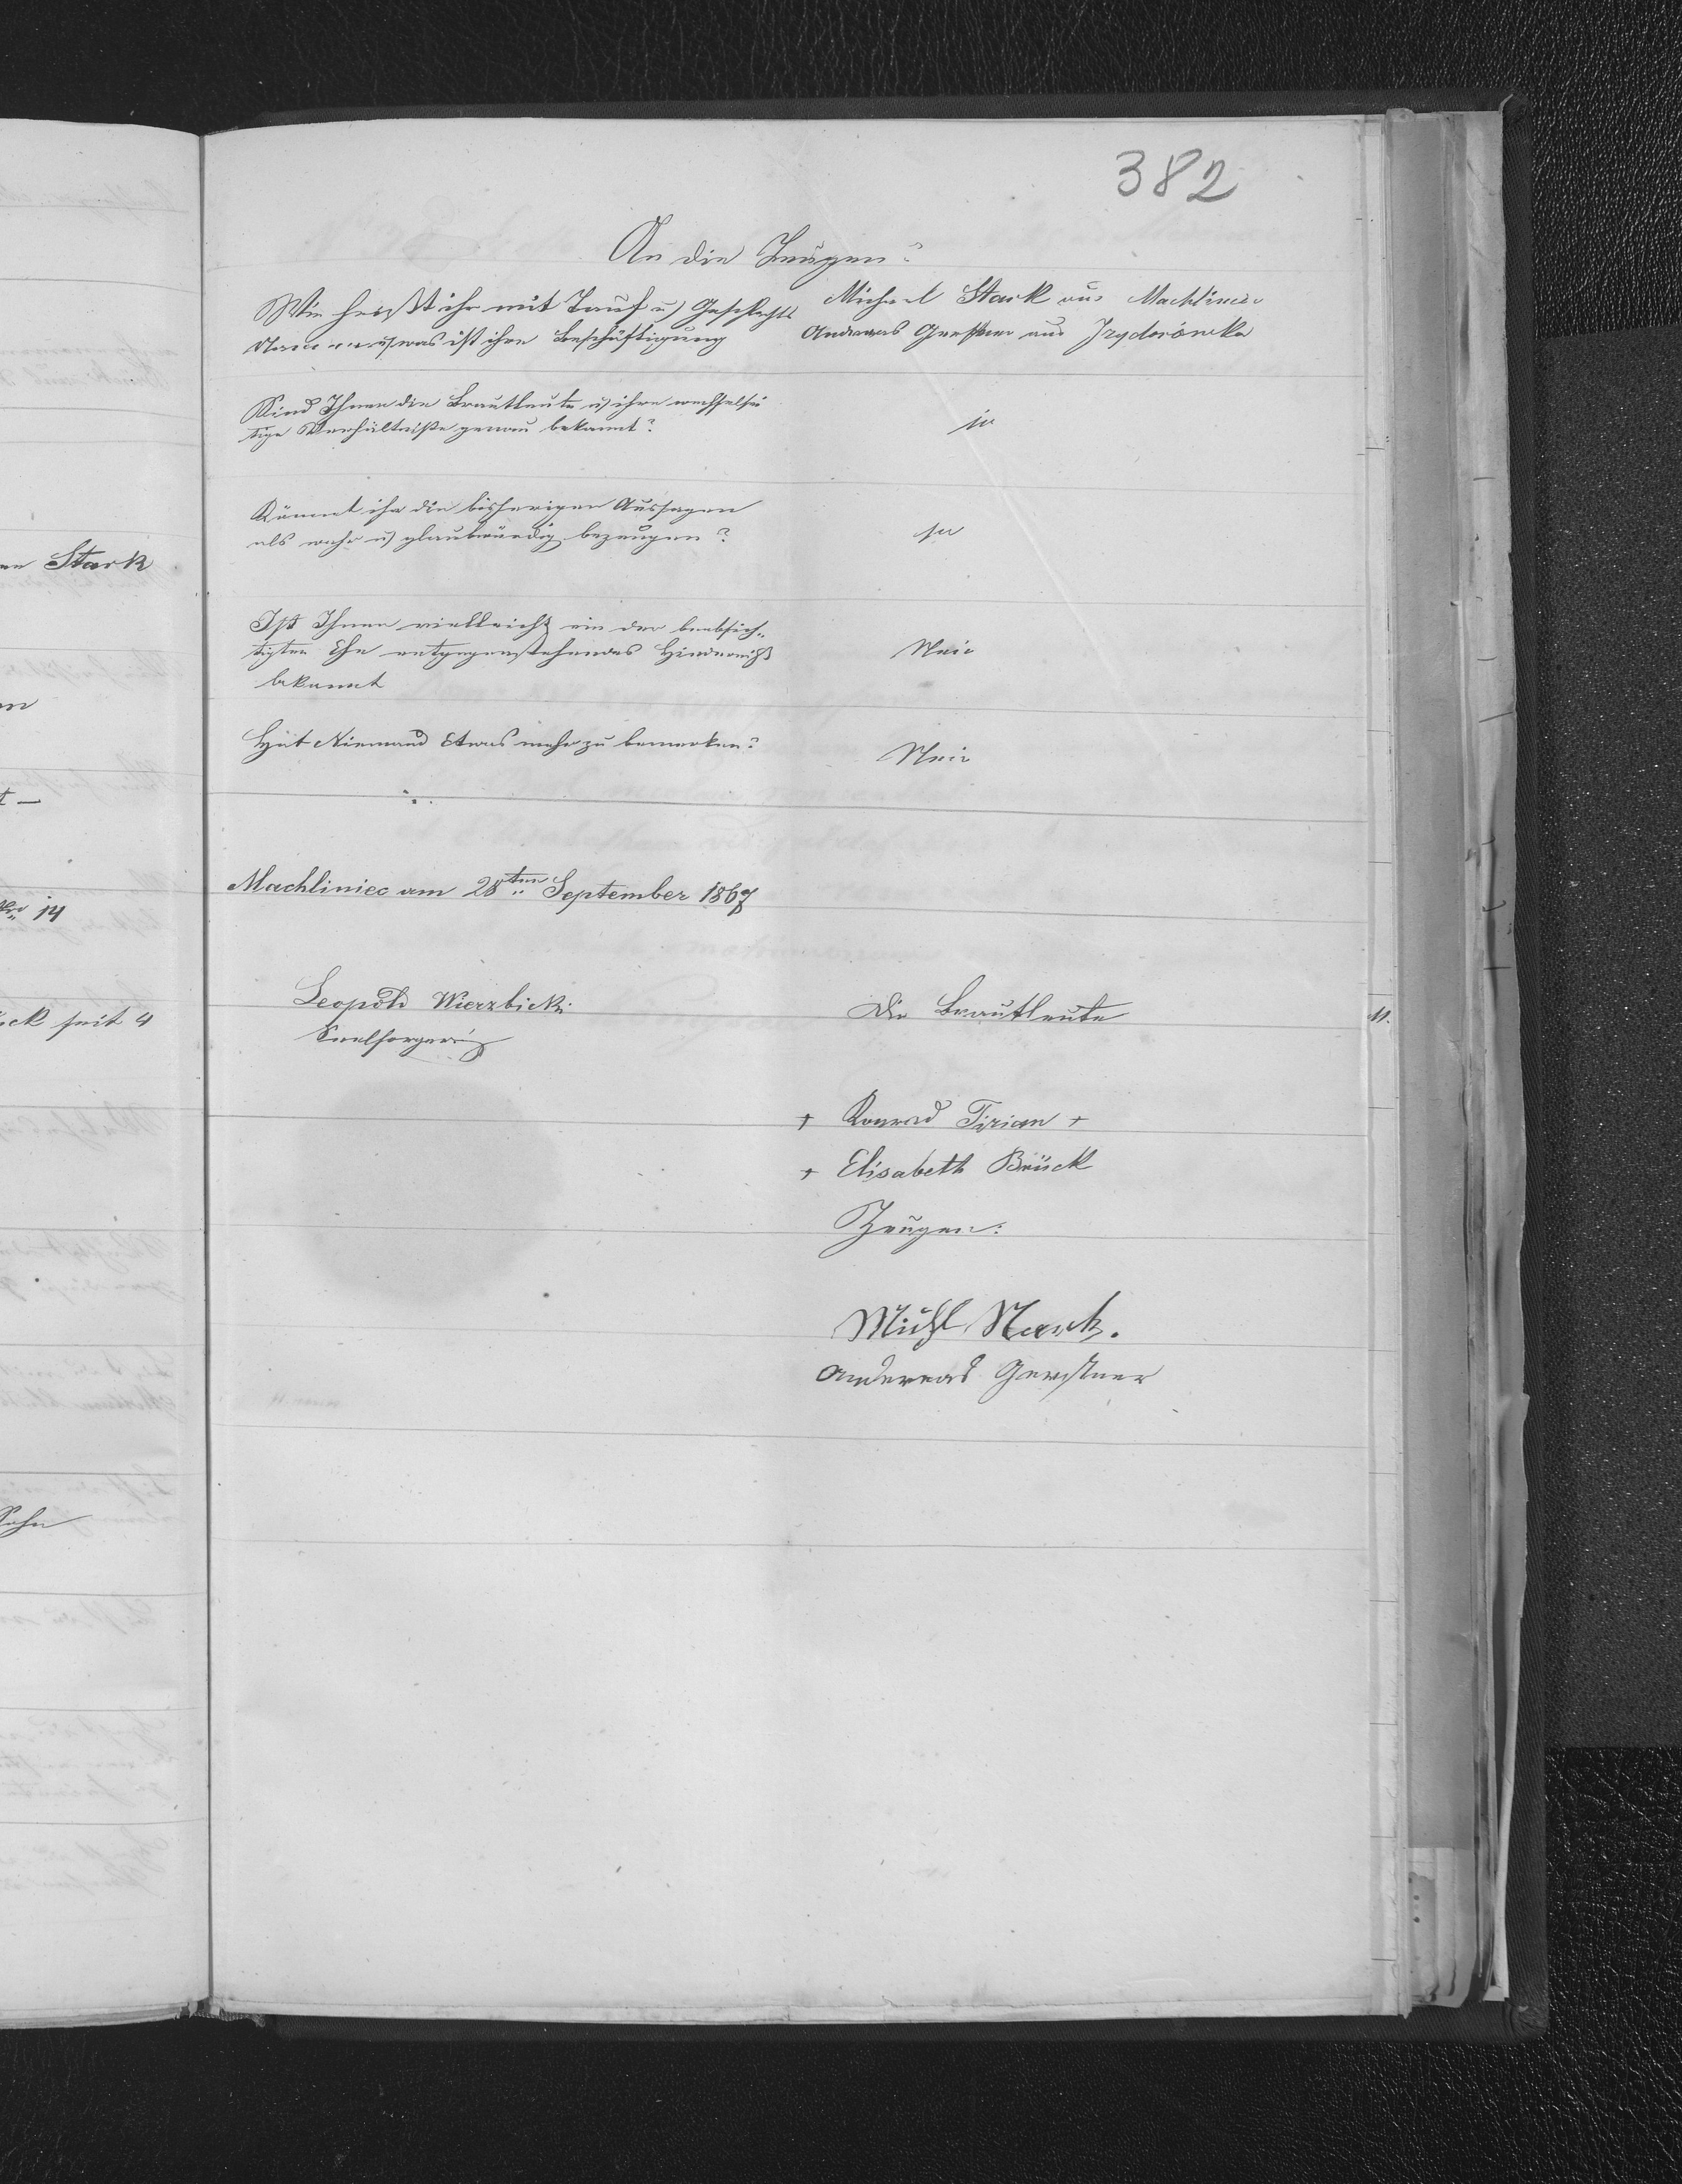 382
An die Zeugen?
Wie heißt ihr mit Tauf u) Geschlechts
Namen u) was ist ihre Beschäftigung
Michael Stark aus Machliniec
Andreas Gerstner aus Izydorówka
Sind Ihnen die Brautleute u) ihre wechselsei
tige Verhältniße genau bekannt?
ja
Könnet ihr die bisherigen Aussagen
als wahr u) glaubwürdig bezeugen?
ja
Ist Ihnen vielleicht ein der beabsich„
tigten Ehe entgegenstehendes Hinderniß
bekannt
Nein
Hat Niemand Etwas mehr zu bemerken?
Nein
Machliniec am 28ten September 1867
Leopold Wierzbicki
Seelsorger
Die Brautleute
+ Konrad Tirian +
+ Elisabeth Brück
Zeugen:
Michl Stark.
Andereas Gerstner
Stark
14
ück seit 4
Sohn